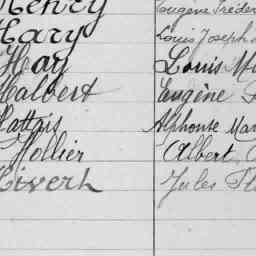 Henry Eugène Fréder
Hary Louis Joseph
Hay Louis M
Halbert Eugène
Hattais Alphonse Mar
Hollier Albert,
Hiverh Jules